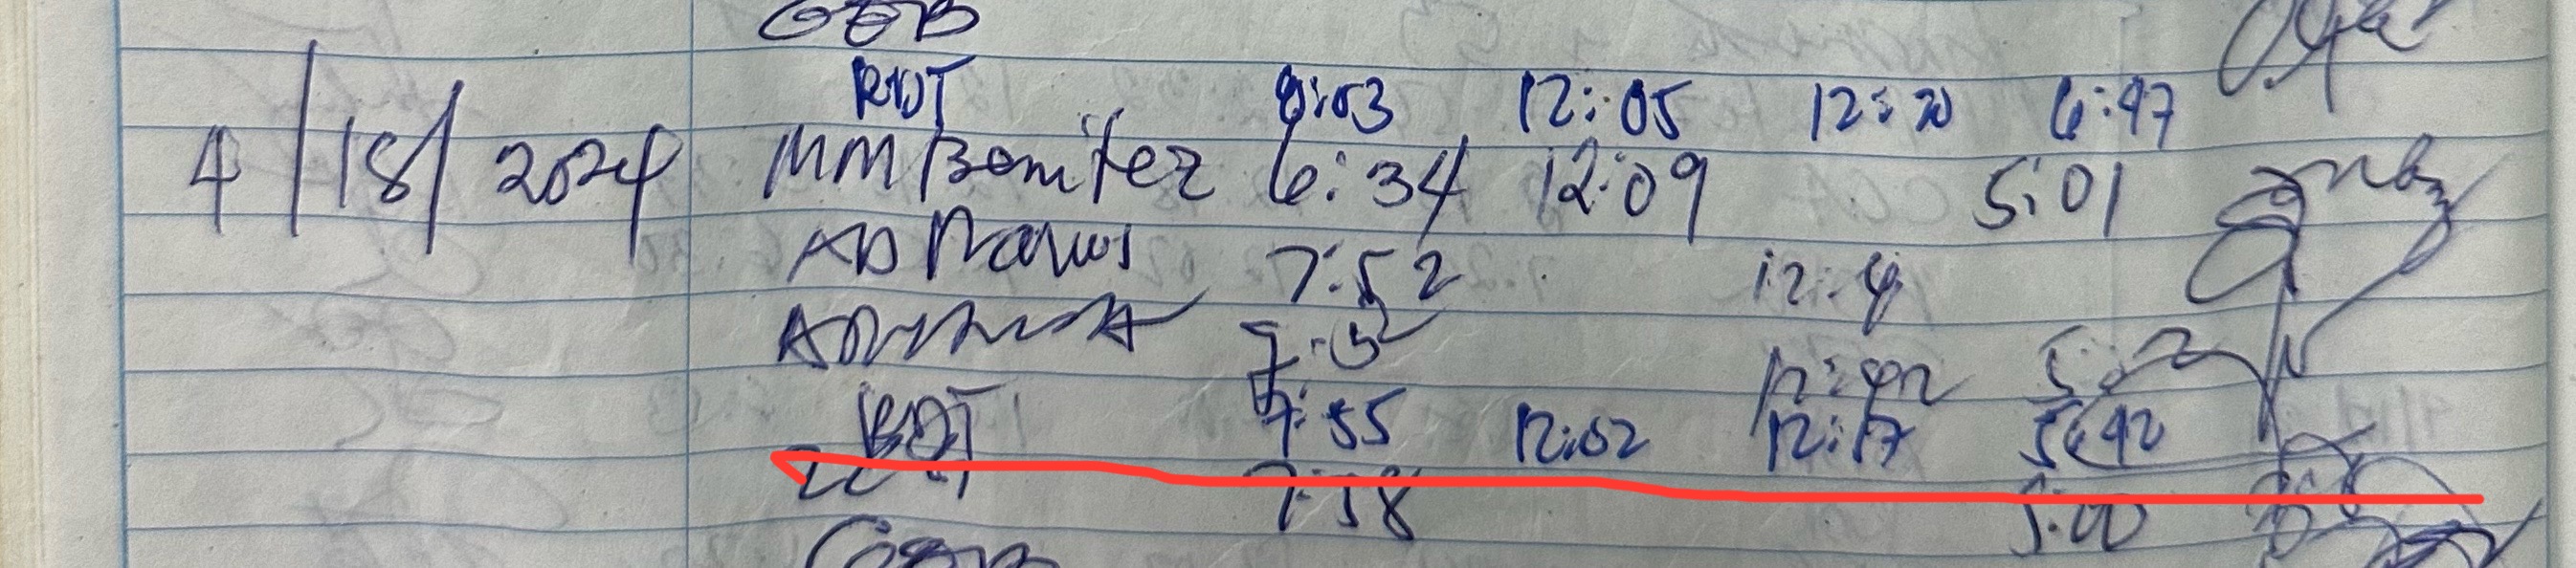 GEB
RDT 8:03 12:05 12:20 6:47
4/18/2024 MM Benitez 6:34 12:09 5:01
AD Navas 7:52 12:4
7:52 12:42 5:
RDT 7:55 12:02 12:17 5:42
7:58 5:00
GEB